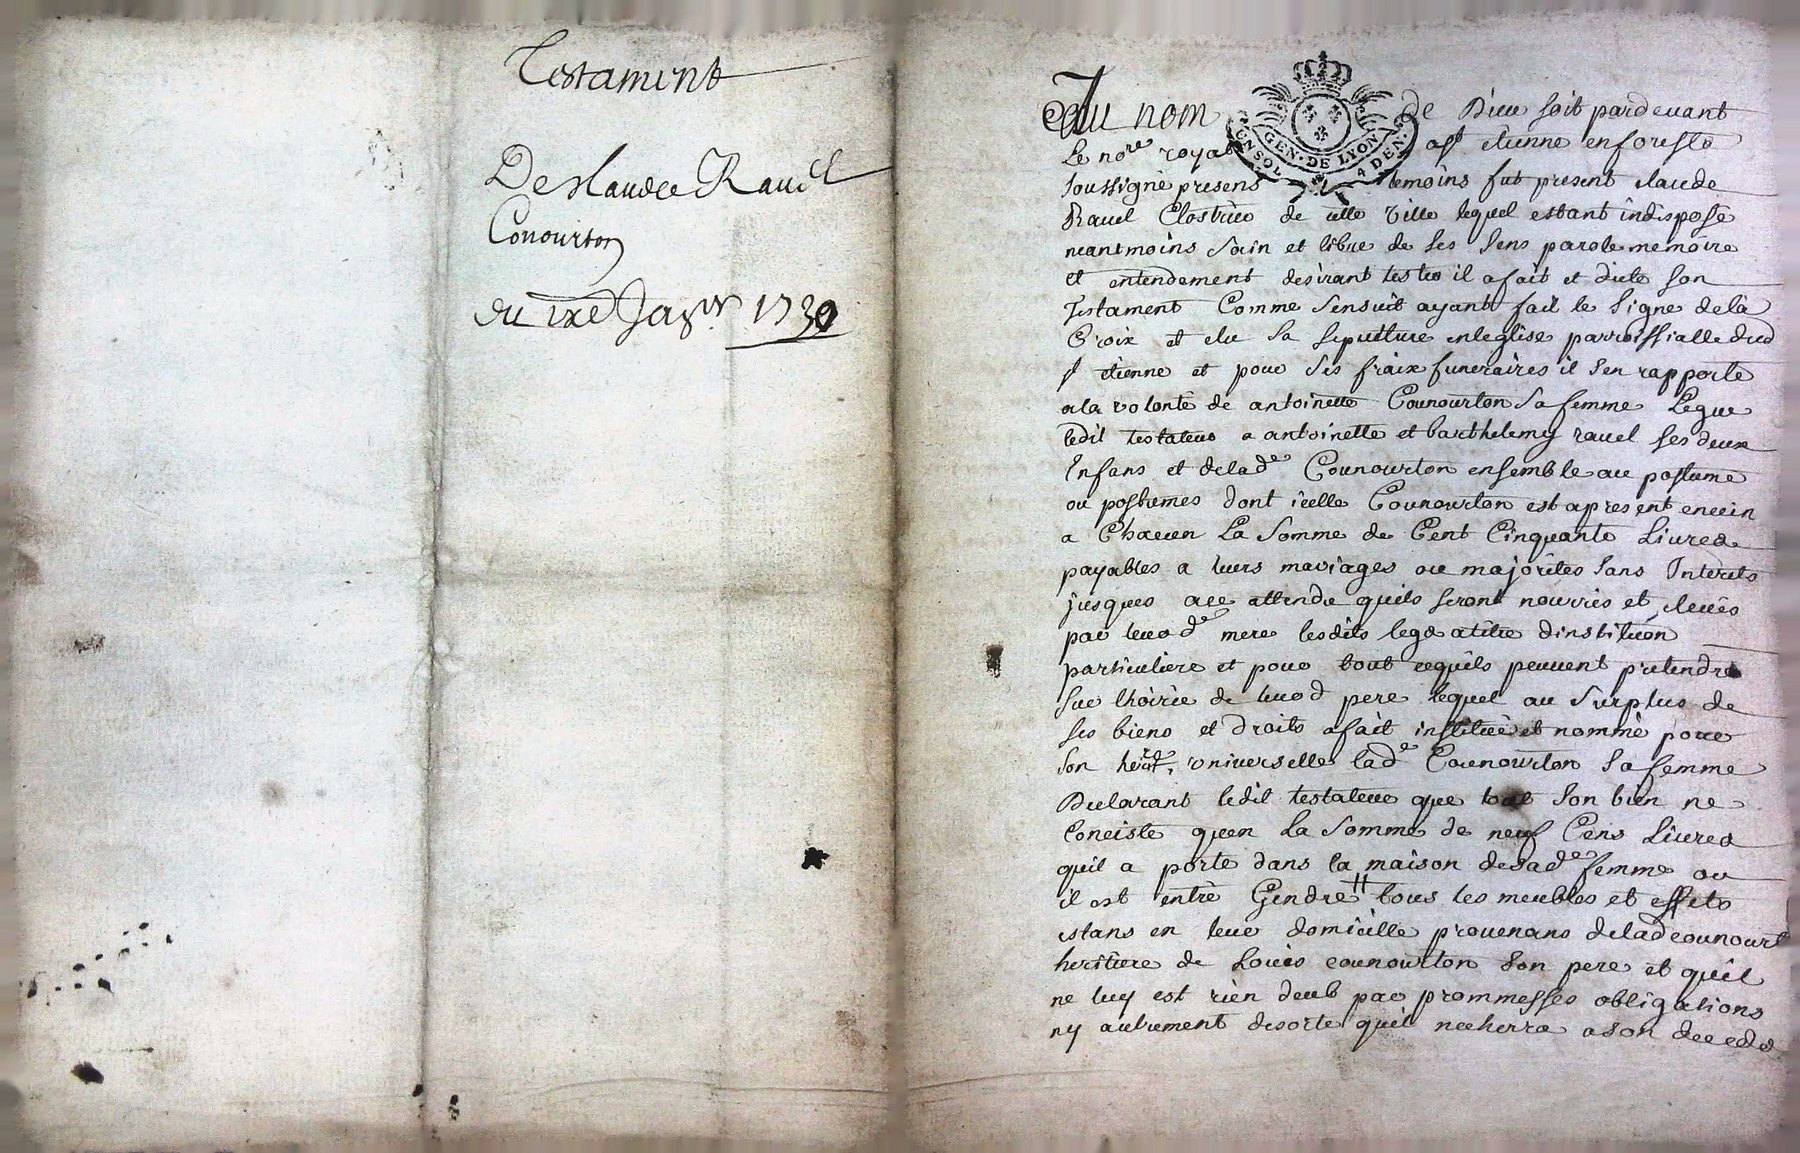 Testament
De Claude Ravel
Conourton
du ixe Janvr. 1730
Au nom de Dieu soit pardevant
Le nore royal a st etienne en forests
soussigne presens temoins fut present claude
Ravel Clostrier de cette Ville lequel estant indisposé
neantmoins sain et libre de ses sens parole memoire
et entendement desirant tester il a fait et dicté son
Testament Comme sensuit ayant fait le signe de la
Croix et elu sa sepulture en leglise parroissialle dud
st etienne et pour ses fraix funeraires il sen rapporte
a la volonté de antoinette Counourton sa femme Legue
ledit testateur a antoinette et barthelemy ravel ses deux
Infans et de lade Counourton ensemble au postume
ou postumes dont icelle Counourton est apresent encein
a Chacun La somme de Cent Cinquante Livres
payables a leurs mariages ou majorites sans Interets
jusques a ce attendu quils seront nourris et elevés
par leurd de mere lesdits legs a titre dinstituôn
particuliere et pour tout cequils peuvent pretendre
sur lhoirie de leurd pere lequel au surplus de
ses biens et droits a fait institué et nommé pour
son herit. universelle lade Counourton sa femme
Declarant ledit testateur que tout son bien ne
Conciste quen la somme de neuf Cens Livres
quil a porté dans la maison de sade femme ou
il est entré Gendre tous les meubles et effets
estans en leur domicille provenans de lad counourt
heritiere de Louis counourton son pere et quil
ne luy est rien deub par prommesses obligations
ny autrement desorte quil necherra a son decedz
GEN. DE LYON